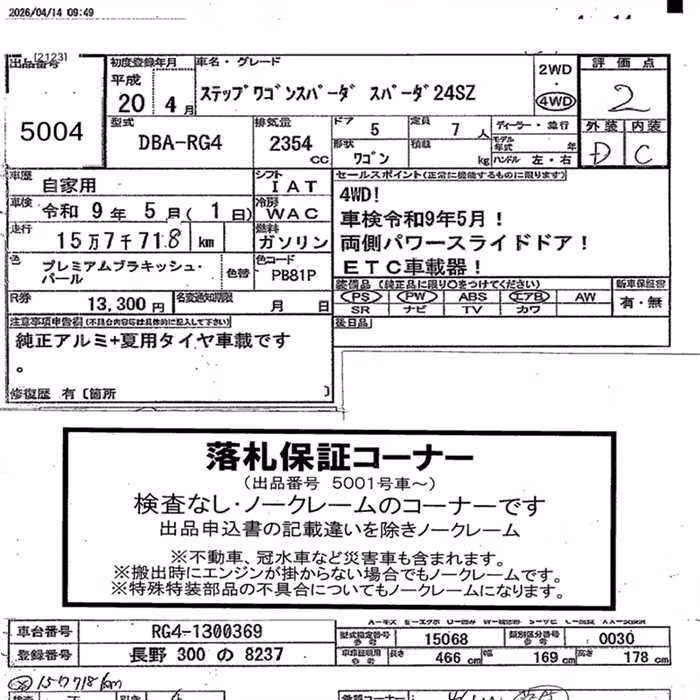 2026/04/14 09:49
[2123]
出品番号
5004
初度登録年月
平成
20 4月
車名・グレード
ステップワゴンスパーダ スパーダ24SZ
2WD
・
4WD
評価点
2
外装 内装
D C
型式
DBA-RG4
排気量
2354
CC
ドア 5
定員 7人
形状
ワゴン
積載
kg
ディーラー・並行
モデル年式 年
ハンドル 左・右
車歴
自家用
シフト
IAT
車検
令和9年5月(1日)
冷房
WAC
走行
15万7千718km
燃料
ガソリン
色
プレミアムブラキッシュ・
パール
色替
色コード
PB81P
R券
13,300円
名変通知期限
月 日
セールスポイント(正常に機能するものに限ります)
4WD!
車検令和9年5月!
両側パワースライドドア!
ETC車載器!
装備品(純正品に限り○をつけてください)
PS PW ABS エアB AW
SR ナビ TV カワ
新車保証書
有・無
後日品
注意事項申告欄(不具合内容等は具体的に記入して下さい)
純正アルミ+夏用タイヤ車載です
。
修復歴 有〔箇所 〕
落札保証コーナー
(出品番号 5001号車~)
検査なし・ノークレームのコーナーです
出品申込書の記載違いを除きノークレーム
※不動車、冠水車など災害車も含まれます。
※搬出時にエンジンが掛からない場合でもノークレームです。
※特殊特装部品の不具合についてもノークレームになります。
車台番号 RG4-1300369
登録番号 長野 300 の 8237
型式指定番号
参考
15068
類別区分番号
参考
0030
車検証明用
参考
長さ 466cm 幅 169cm 高さ 178cm
157718km